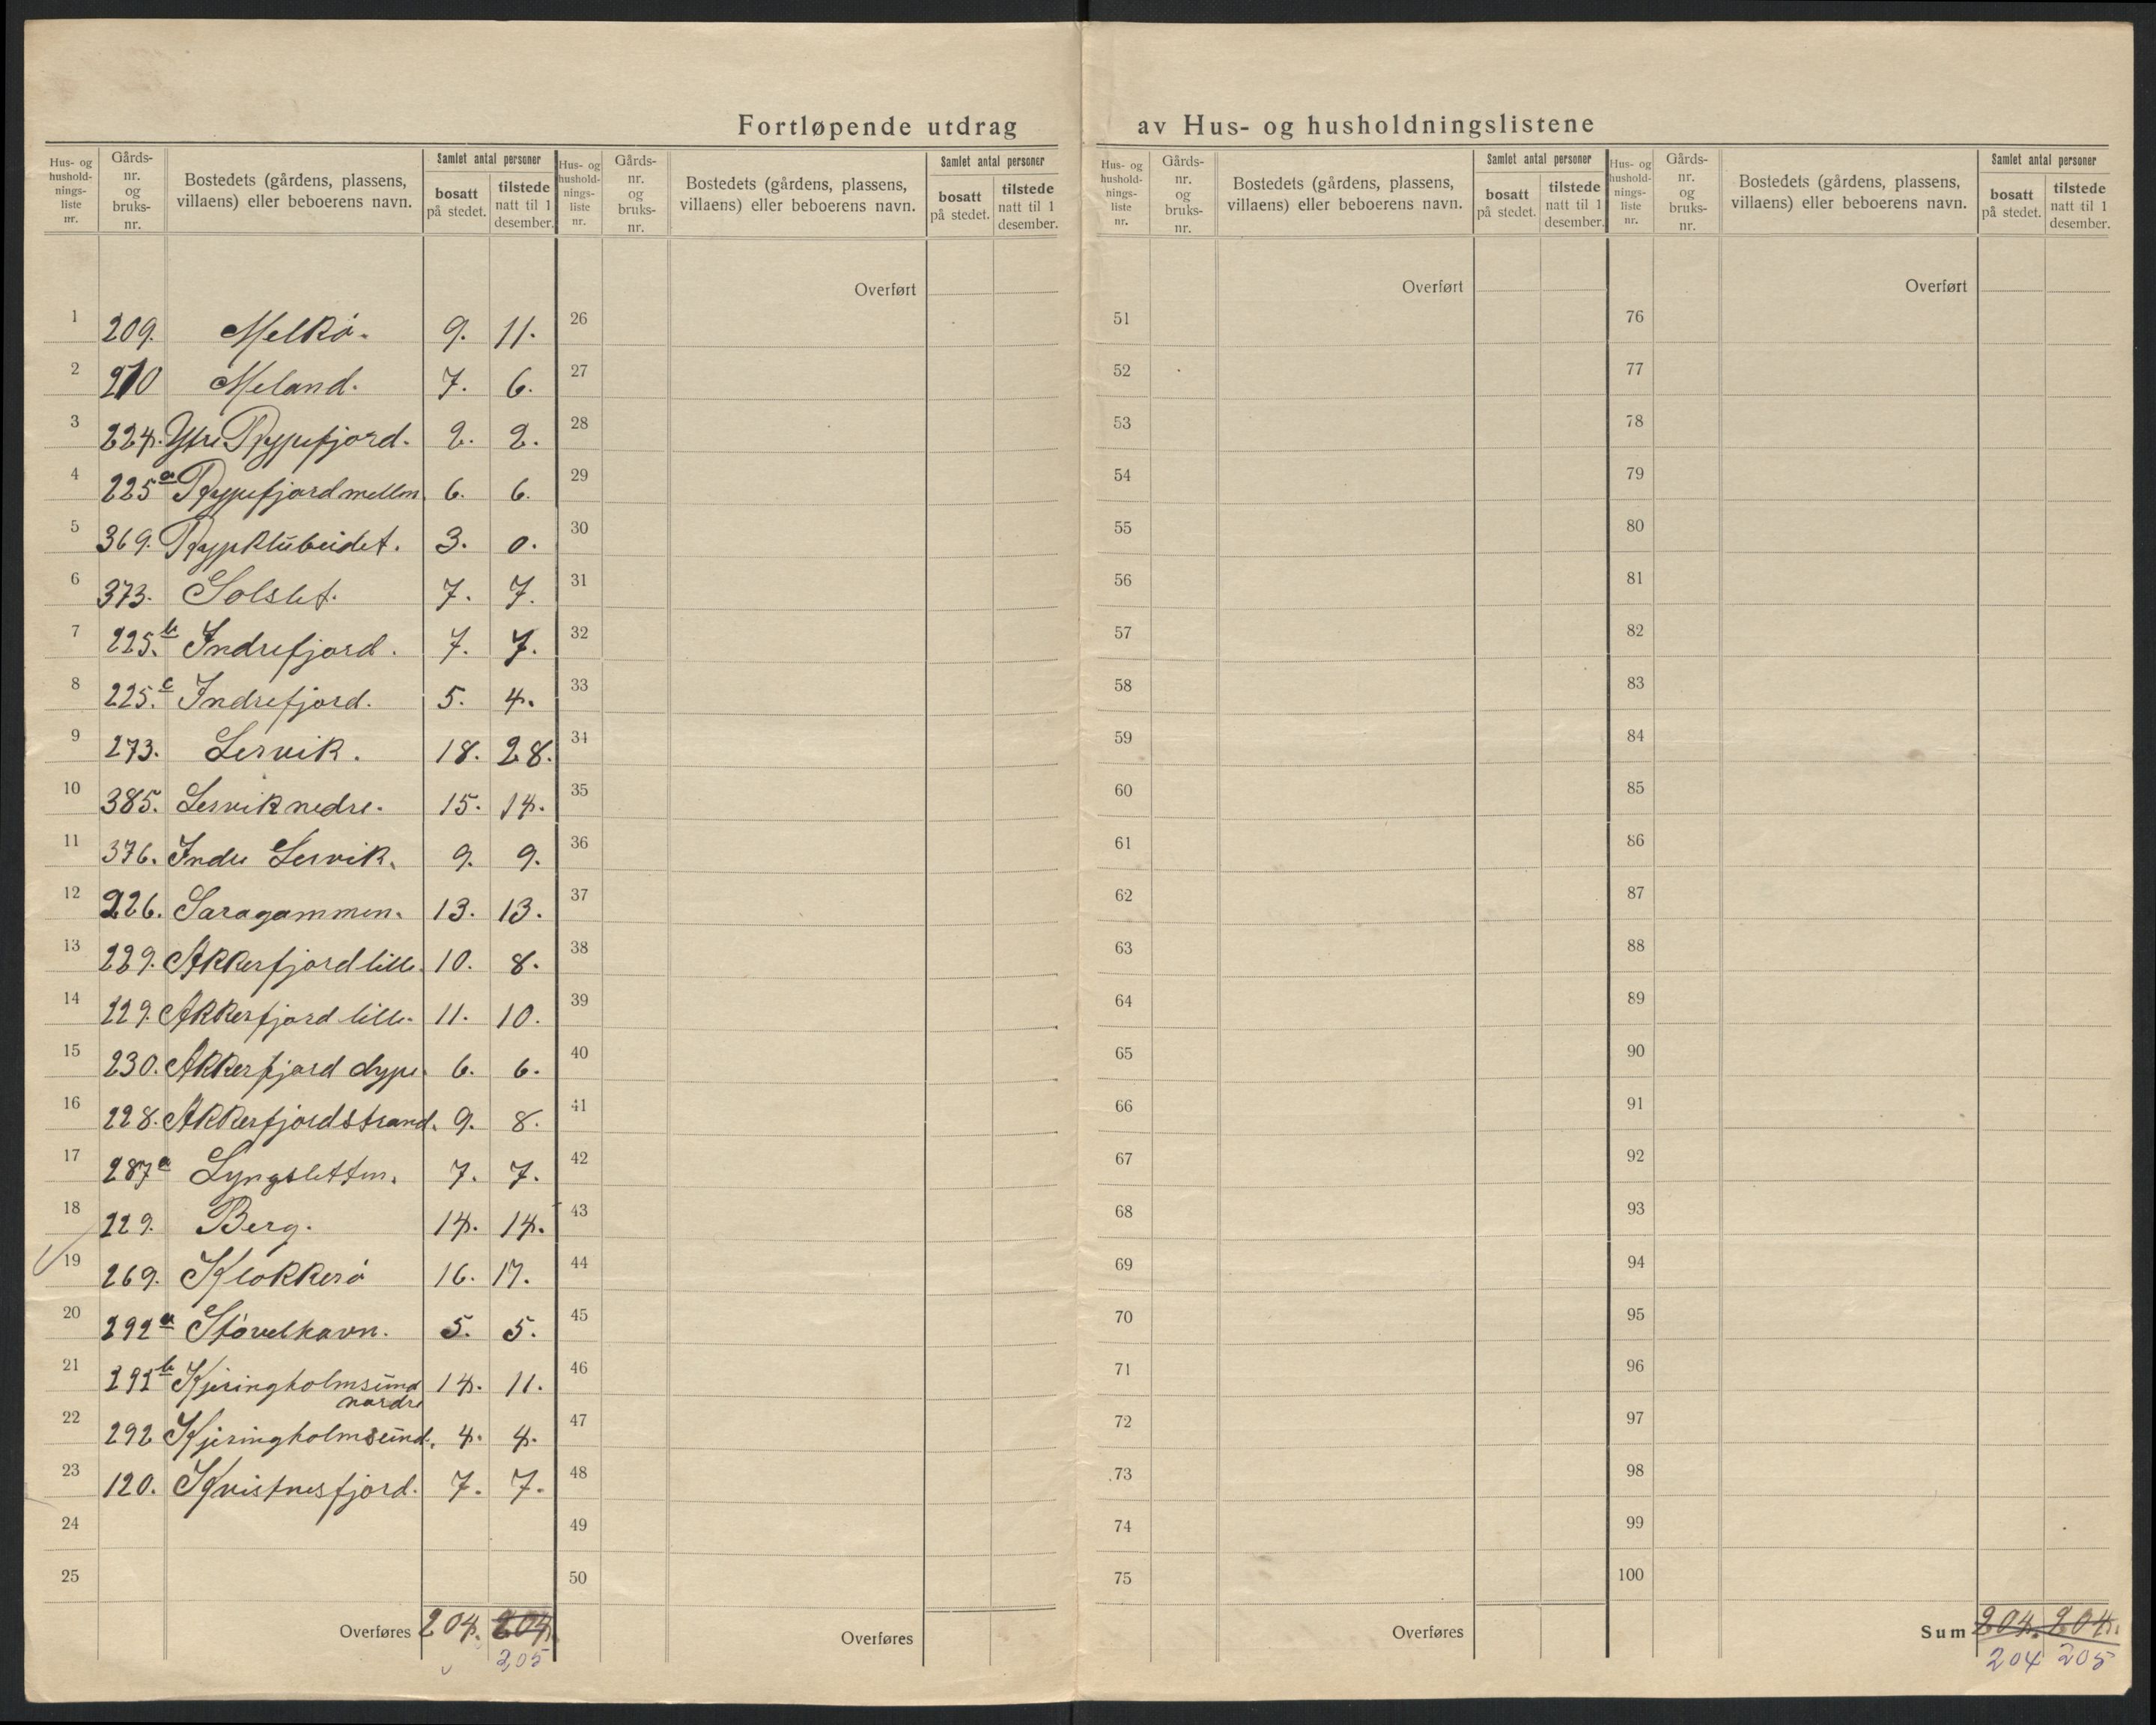 Fortløpende utdrag av Hus- og husholdningslistene
Hus- og hushold-nings-liste nr. Gårds-nr. og bruks-nr. Bostedets (gårdens, plassens, villaens) eller beboerens navn. Samlet antal personer bosatt på stedet. tilstede natt til 1 desember.
Hus- og hushold-nings-liste nr. Gårds-nr. og bruks-nr. Bostedets (gårdens, plassens, villaens) eller beboerens navn. Samlet antal personer bosatt på stedet. tilstede natt til 1 desember.
Hus- og hushold-nings-liste nr. Gårds-nr. og bruks-nr. Bostedets (gårdens, plassens, villaens) eller beboerens navn. Samlet antal personer bosatt på stedet. tilstede natt til 1 desember.
Hus- og hushold-nings-liste nr. Gårds-nr. og bruks-nr. Bostedets (gårdens, plassens, villaens) eller beboerens navn. Samlet antal personer bosatt på stedet. tilstede natt til 1 desember.
Overført Overført Overført
1 209. Melkö. 9. 11. 26 51 76
2 210 Meland. 7. 6. 27 52 77
3 224. Ytre Rypefjord. 2. 2. 28 53 78
4 225a Rypefjord mellem 6. 6. 29 54 79
5 369. Rypklubeidet. 3. 0. 30 55 80
6 373. Solslet. 7. 7. 31 56 81
7 225.b Indrefjord. 7. 7. 32 57 82
8 225.c Indrefjord. 5. 4. 33 58 83
9 273. Lervik. 18. 28. 34 59 84
10 385. Lervik nedre. 15. 14. 35 60 85
11 376. Indre Lervik. 9. 9. 36 61 86
12 226. Saragammen. 13. 13. 37 62 87
13 229. Akkerfjord lille. 10. 8. 38 63 88
14 229. Akkerfjord lille. 11. 10. 39 64 89
15 230. Akkerfjord dype. 6. 6. 40 65 90
16 228. Akkerfjordstrand. 9. 8. 41 66 91
17 287a Lyngsletten. 7. 7. 42 67 92
18 229. Berg. 14. 14. 43 68 93
19 269. Klokkerö 16. 17. 44 69 94
20 292a Stövelhavn. 5. 5. 45 70 95
21 292b Kjeringholmsund nordre 14. 11. 46 71 96
22 292 Kjeringholmsund. 4. 4. 47 72 97
23 120. Kvistnesfjord. 7. 7. 48 73 98
24 49 74 99
25 50 75 100
Overføres 204. 204. Overføres Overføres Sum 204. 204.
205 204 205